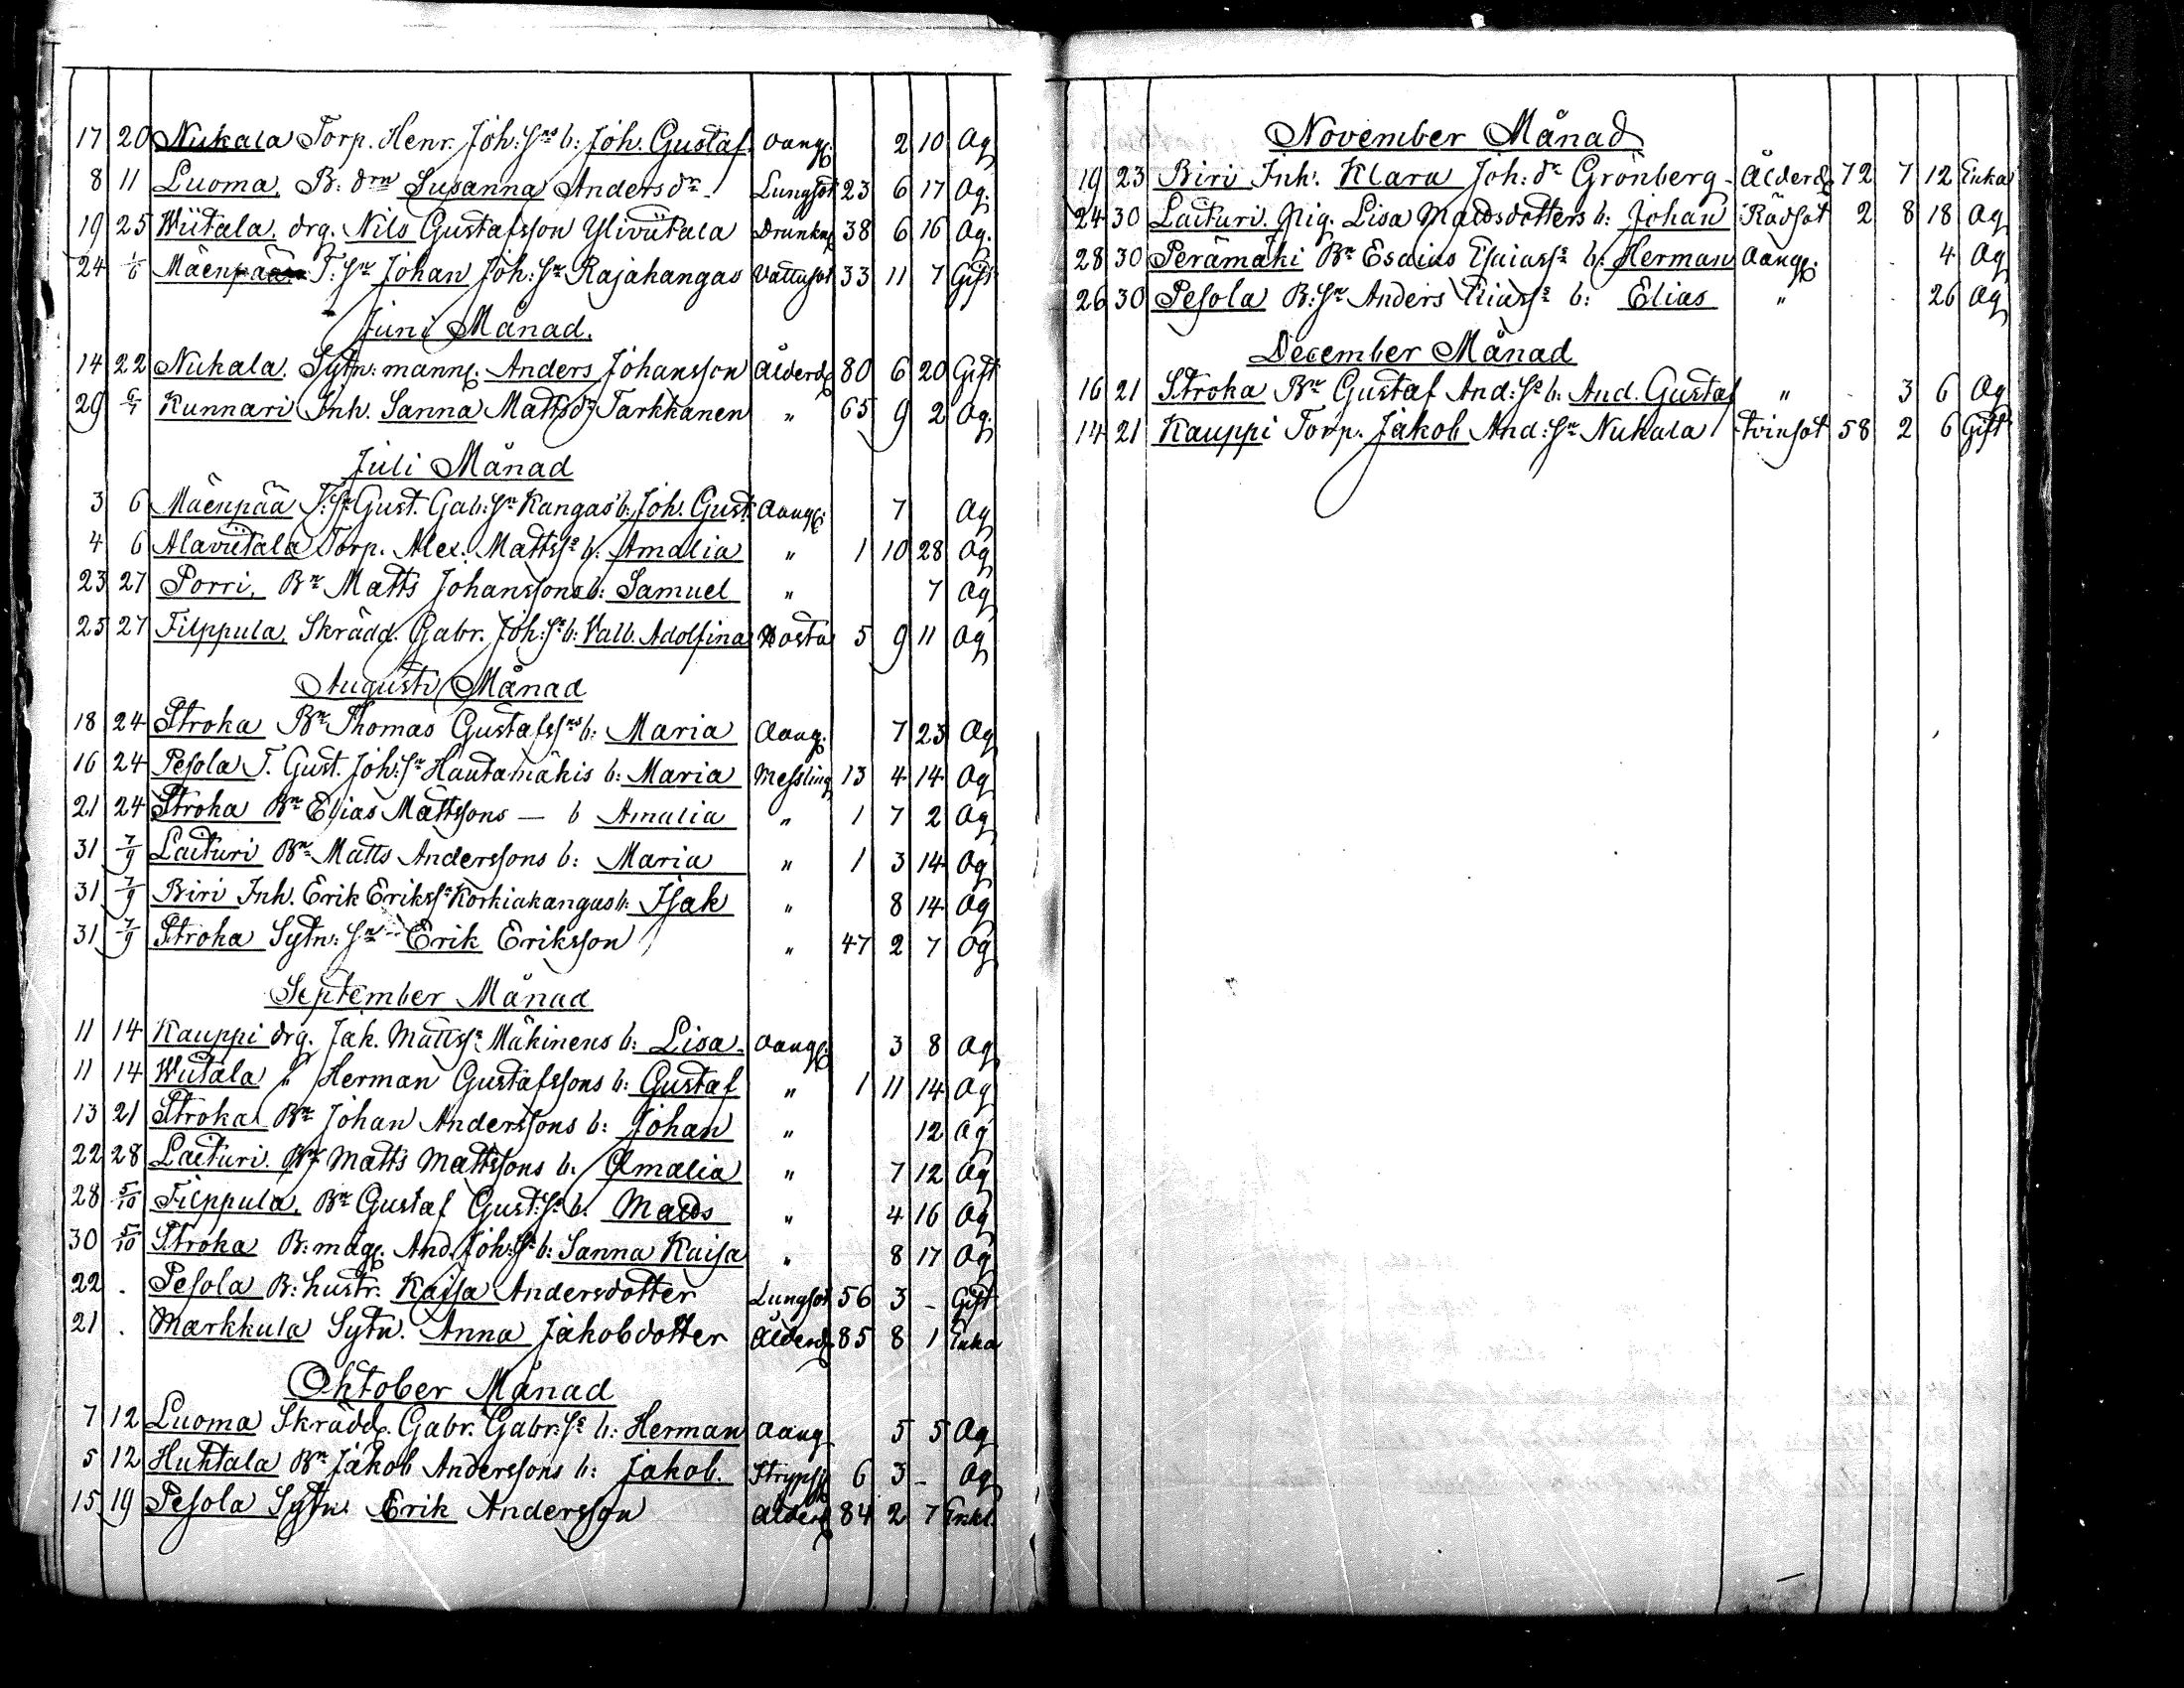 17 20 Nukala Torp. Henr. Joh:sns b: Joh. Gustaf Aang. 2 10 Og
8 11 Luoma, B: drn Susanna Andersdr. Lungsot 23 6 17 Og.
19 25 Wiitala. drg. Nils Gustafsson Yliviitala Drunkn 38 6 16 Og.
24 1/6 Mäenpää T: sn Johan Joh:sn Rajakangas Vattusot 33 11 7 Gift
Juni Månad.
14 22 Nukala. Sytn: mann. Anders Johansson Ålderd 80 6 20 Gift
29 6/7 Kunnari Inh. Sanna Mattsdr Tarkkanen " 65 9 2 Og.
Juli Månad
3 6 Mäenpää T: sn Gust. Gab:sn Kangas b: Joh. Gust. Aang. 7 Og
4 6 Alaviitala Torp. Alex. Mattss b: Amalia " 1 10 28 Og
23 27 Porri, Bn Matts Johanssons b: Samuel " 7 Og
25 27 Filppula, Skrädd. Gabr. Joh:s b: Valb. Adolfina Hosta 5 9 11 Og
Augusti Månad
18 24 Stroka Bn Thomas Gustafssns b: Maria Aang. 7 23 Og
16 24 Pesola T. Gust. Joh:sn Hautamäkis b: Maria Messling 13 4 14 Og
21 24 Stroka Bn Elias Mattssons — b Amalia " 1 7 2 Og
31 7/9 Laituri Bn Matts Anderssons b: Maria " 1 3 14 Og
31 7/9 Biri Inh. Erik Erikss Korkiakangas b: Isak " 8 14 Og
31 7/9 Stroka Sytn: sn Erik Eriksson " 47 2 7 Og
September Månad
11 14 Kauppi drg. Jak. Mattss Mäkinens b: Lisa. Aang. 3 8 Og
11 14 Wiitala " Herman Gustafssons b: Gustaf " 1 11 14 Og
13 21 Stroka Bn Johan Anderssons b: Johan " 12 Og
22 28 Laituri. Bn Matts Mattssons b. Amalia " 7 12 Og
28 5/10 Filppula, Bn Gustaf Gust:s b. Matts " 4 16 Og
30 5/10 Stroka B: måg. And. Joh:s b: Sanna Kaisa " 8 17 Og
22 . Pesola B: hustr. Kaisa Andersdotter Lungsot 56 3 - Gift
21 . Markkula Sytn. Anna Jakobsdotter Ålderd. 85 8 1 Enka
Oktober Månad
7 12 Luoma Skrädd. Gabr. Gabr:s b: Herman Aang 5 5 Og
5 12 Huhtala Bn Jakob Anderssons b: Jakob. Strypsj 6 3 - Og
15 19 Pesola Sytn. Erik Andersson Ålderd 84 2 7 Enkl.
November Månad
19 23 Biri Inh. Klara Joh: dr Grönberg - Ålderd 72 7 12 Enka
24 30 Laituri. Pig. Lisa Mattsdotters b: Johan Rödsot 2 8 18 Og
28 30 Perämäki Bn Esaias Esaiass b: Herman Aang. 4 Og
26 30 Pesola B: sn Anders Eliass b: Elias " 26 Og
December Månad
16 21 Stroka Bn Gustaf And:s b: And. Gustaf " 3 6 Og
14 21 Kauppi Torp. Jakob And:sn Nukala Tvinsot 58 2 6 Gift